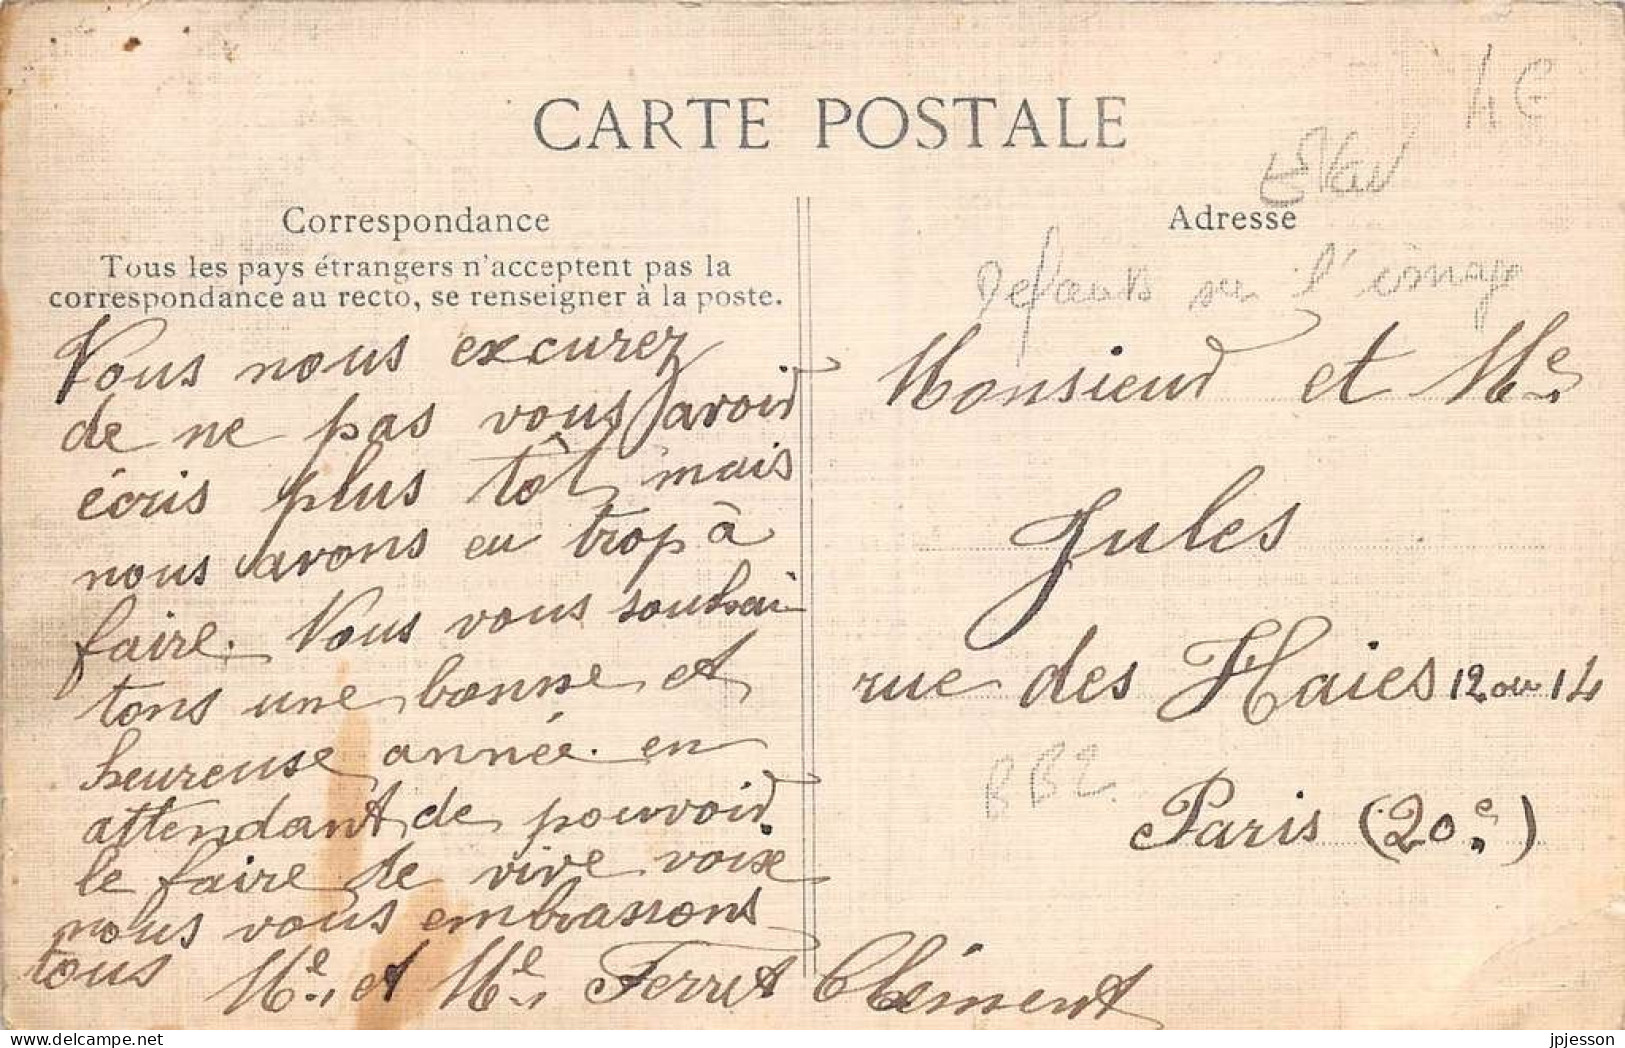 4€
CARTE POSTALE
Correspondance
Adresse
Tous les pays étrangers n'acceptent pas la
correspondance au recto, se renseigner à la poste.
Defauts sur l'image
Vous nous excurez
de ne pas vous avoir
écris plus tôt, mais
nous avons eu trop à
faire. Nous vous souhai-
tons une bonne et
heureuse année. en
attendant de pouvoir
le faire de vive voix
nous vous embrassons
tous Me et Me Ferret Clément
Monsieur et Me
Jules
rue des Haies 12 ou 14
BB2
Paris (20e)
delcampe.net
jpjesson